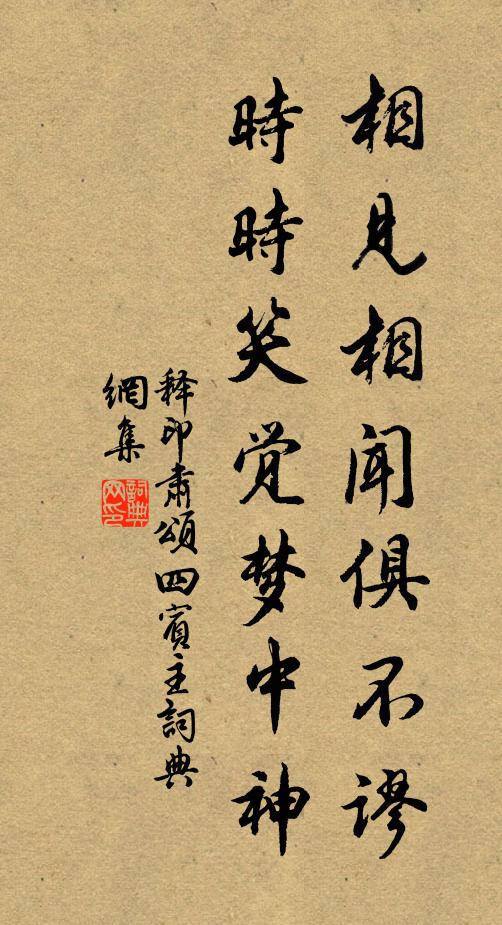 相見相聞俱不謬
時時笑覺梦中神
释印肅頌四賓主詞典
網集
詞典
网印